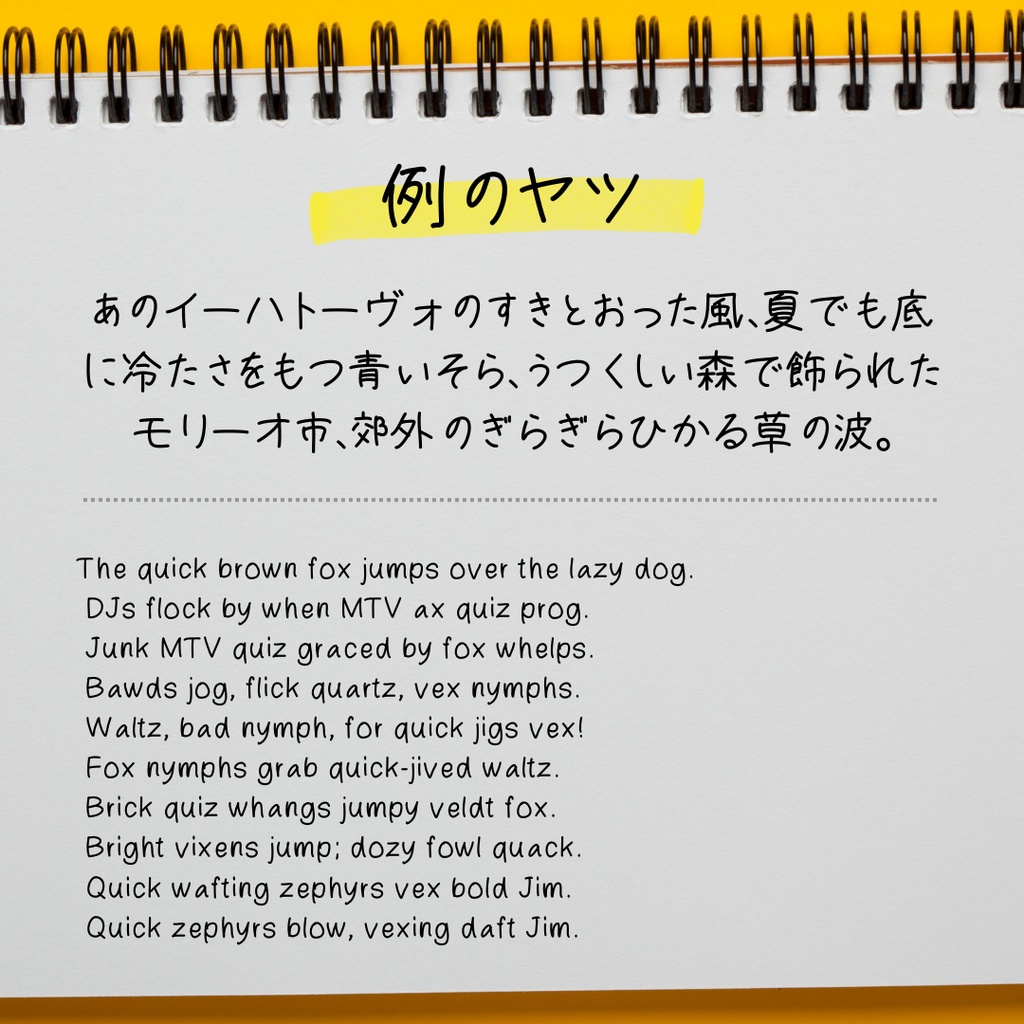 例のヤツ
あのイーハトーヴォのすきとおった風、夏でも底
に冷たさをもつ青いそら、うつくしい森で飾られた
モリーオ市、郊外のぎらぎらひかる草の波。
The quick brown fox jumps over the lazy dog.
DJs flock by when MTV ax quiz prog.
Junk MTV quiz graced by fox whelps.
Bawds jog, flick quartz, vex nymphs.
Waltz, bad nymph, for quick jigs vex!
Fox nymphs grab quick-jived waltz.
Brick quiz whangs jumpy veldt fox.
Bright vixens jump; dozy fowl quack.
Quick wafting zephyrs vex bold Jim.
Quick zephyrs blow, vexing daft Jim.